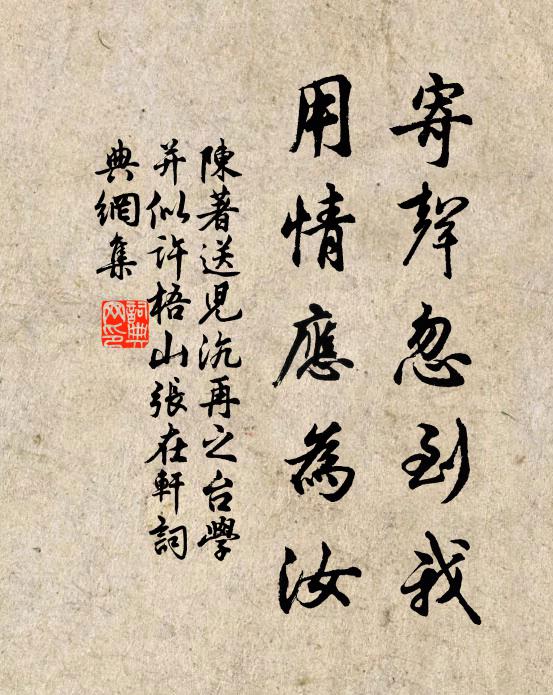 寄聲忽到我
用情應為汝
陳著送兒沆再之台學
并似許梧山張在軒詞
典網集
詞典
网印